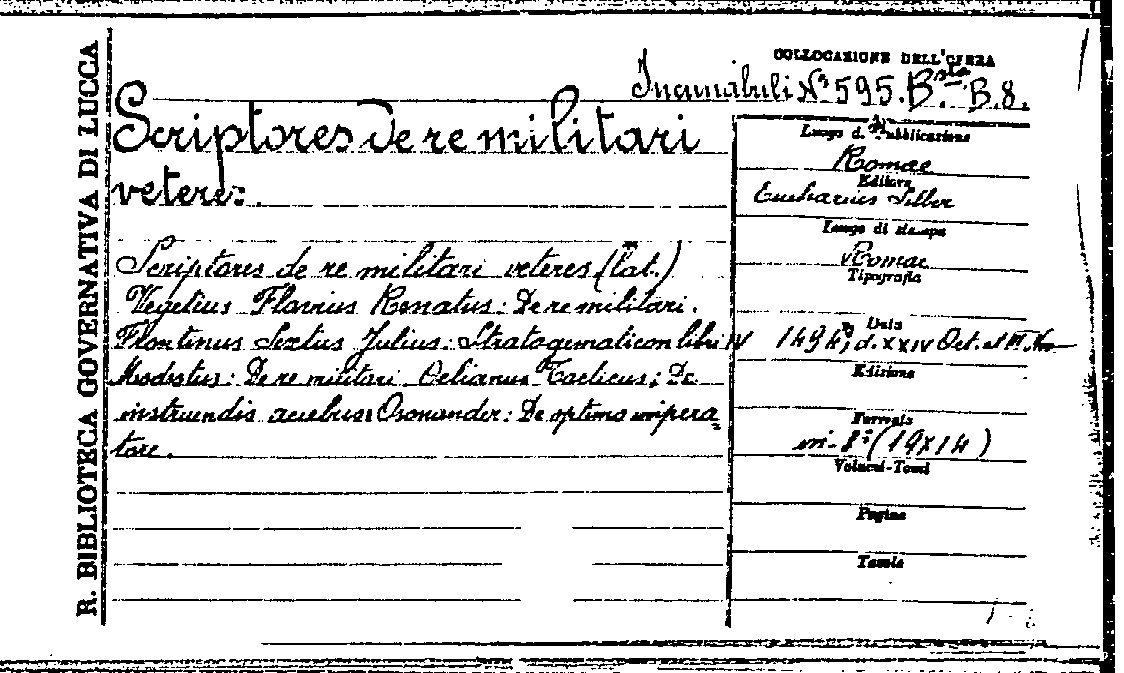 R. BIBLIOTECA GOVERNATIVA DI LUCCA
COLLOCAZIONE DELL'OPERA
Incunabuli Nº 595. Bsta B.8.
Scriptores de re militari
veteres.
Scriptores de re militari veteres (lat.)
Vegetius Flavius Renatus: De re militari.
Frontinus Sextus Julius: Strategematicon libri IV
Modestus: De re militari Aelianus Tacticus: De
instruendis aciebus: Onosander: De optimo impera=
tore.
Luogo di Pubblicazione
Romae
Editore
Eucharius Silber
Luogo di stampa
Romae
Tipografia
Data
1494, d. XXIV Oct. et
Edizione
Formato
in-8º (19X14)
Volumi-Tomi
Pagine
Tavole